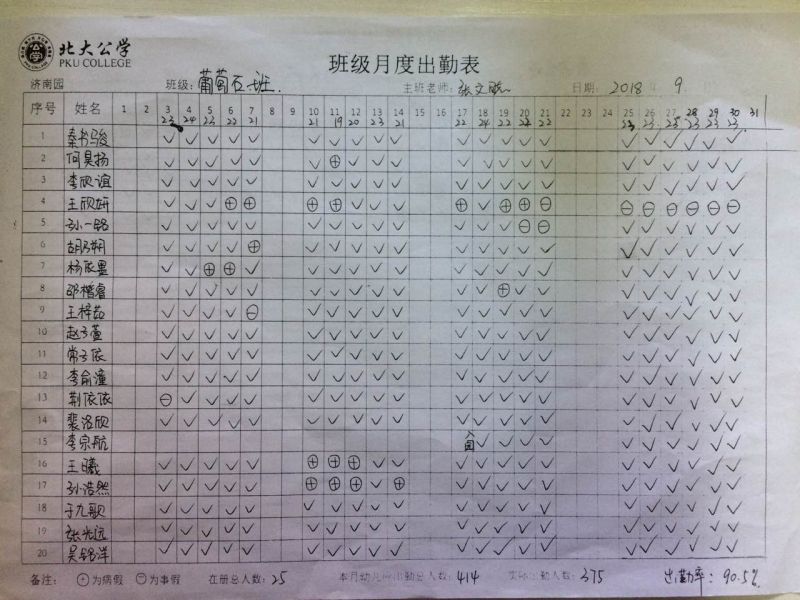 北大公学
PKU COLLEGE
班级月度出勤表
济南园 班级: 葡萄石班 主班老师: 张文 日期: 2018 . 9 .
序号 姓名 1 2 3 4 5 6 7 8 9 10 11 12 13 14 15 16 17 18 19 20 21 22 23 24 25 26 27 28 29 30 31
23 24 23 22 21 21 19 20 23 21 22 24 22 22 22 23 23 25 23 23 23
1 秦书骏 ✓ ✓ ✓ ✓ ✓ ✓ ✓ ✓ ✓ ✓ ✓ ✓ ✓ ✓ ✓ ✓ ✓ ✓ ✓ ✓ ✓
2 何昊扬 ✓ ✓ ✓ ✓ ✓ ✓ ⊕ ✓ ✓ ✓ ✓ ✓ ✓ ✓ ✓ ✓ ✓ ✓ ✓ ✓ ✓
3 李欣谊 ✓ ✓ ✓ ✓ ✓ ✓ ✓ ✓ ✓ ✓ ✓ ✓ ✓ ✓ ✓ ✓ ✓ ✓ ✓ ✓ ✓
4 王欣妍 ✓ ✓ ✓ ⊕ ⊕ ⊕ ⊕ ✓ ✓ ✓ ⊕ ✓ ⊕ ⊕ ⊖ ⊖ ⊖ ⊖ ⊖ ⊖ ⊖
5 孙一铭 ✓ ✓ ✓ ✓ ✓ ✓ ✓ ✓ ✓ ✓ ✓ ✓ ✓ ⊖ ⊖ ✓ ✓ ✓ ✓ ✓ ✓
6 胡乃朔 ✓ ✓ ✓ ✓ ⊕ ✓ ✓ ✓ ✓ ✓ ✓ ✓ ✓ ✓ ✓ ✓ ✓ ✓ ✓ ✓ ✓
7 杨依墨 ✓ ✓ ⊕ ⊕ ✓ ✓ ✓ ✓ ✓ ✓ ✓ ✓ ✓ ✓ ✓ ✓ ✓ ✓ ✓ ✓ ✓
8 邵楷睿 ✓ ✓ ✓ ✓ ✓ ✓ ✓ ✓ ✓ ✓ ✓ ✓ ⊕ ✓ ✓ ✓ ✓ ✓ ✓ ✓ ✓
9 王梓茹 ✓ ✓ ✓ ✓ ⊖ ✓ ✓ ✓ ✓ ✓ ✓ ✓ ✓ ✓ ✓ ✓ ✓ ✓ ✓ ✓ ✓
10 赵子萱 ✓ ✓ ✓ ✓ ✓ ✓ ✓ ✓ ✓ ✓ ✓ ✓ ✓ ✓ ✓ ✓ ✓ ✓ ✓ ✓ ✓
11 常子依 ✓ ✓ ✓ ✓ ✓ ✓ ✓ ✓ ✓ ✓ ✓ ✓ ✓ ✓ ✓ ✓ ✓ ✓ ✓ ✓ ✓
12 李俞潼 ✓ ✓ ✓ ✓ ✓ ✓ ✓ ✓ ✓ ✓ ✓ ✓ ✓ ✓ ✓ ✓ ✓ ✓ ✓ ✓ ✓
13 荆依依 ⊖ ✓ ✓ ✓ ✓ ✓ ✓ ✓ ✓ ✓ ✓ ✓ ✓ ✓ ✓ ✓ ✓ ✓ ✓ ✓ ✓
14 裴洛欣 ✓ ✓ ✓ ✓ ✓ ✓ ✓ ✓ ✓ ✓ ✓ ✓ ✓ ✓ ✓ ✓ ✓ ✓ ✓ ✓ ✓
15 李宗航 入园 ✓ ✓ ✓ ✓ ✓ ✓ ✓ ✓ ✓ ✓
16 王曦 ✓ ✓ ✓ ✓ ✓ ⊕ ⊕ ⊕ ✓ ✓ ✓ ✓ ✓ ✓ ✓ ✓ ✓ ✓ ✓ ✓ ✓
17 孙浩然 ✓ ✓ ✓ ✓ ✓ ⊕ ⊕ ⊕ ✓ ⊕ ✓ ✓ ✓ ✓ ✓ ✓ ✓ ✓ ✓ ✓ ✓
18 于九歌 ✓ ✓ ✓ ✓ ✓ ✓ ✓ ✓ ✓ ✓ ✓ ✓ ✓ ✓ ✓ ✓ ✓ ✓ ✓ ✓ ✓
19 张光远 ✓ ✓ ✓ ✓ ✓ ✓ ✓ ✓ ✓ ✓ ✓ ✓ ✓ ✓ ✓ ✓ ✓ ✓ ✓ ✓ ✓
20 吴铭洋 ✓ ✓ ✓ ✓ ✓ ✓ ✓ ✓ ✓ ✓ ✓ ✓ ✓ ✓ ✓ ✓ ✓ ✓ ✓ ✓ ✓
备注: ⊕为病假 ⊖为事假 在册总人数: 25 本月幼儿应出勤总人数: 414 实际出勤人数: 375 出勤率: 90.5%